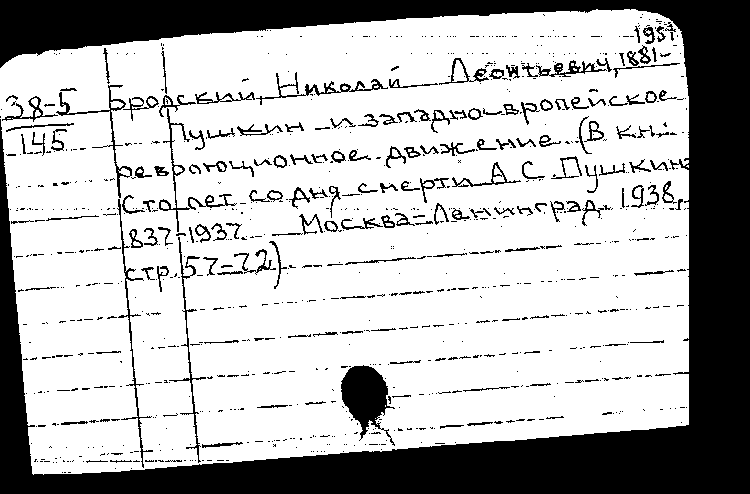 1951
38-5 Бродский, Николай Леонтьевич, 1881-
145 Пушкин и западно-европейское
революционное движение (В кн.:
Сто лет со дня смерти А С Пушкина
1837-1937 Москва-Ленинград, 1938,
стр. 57-72)